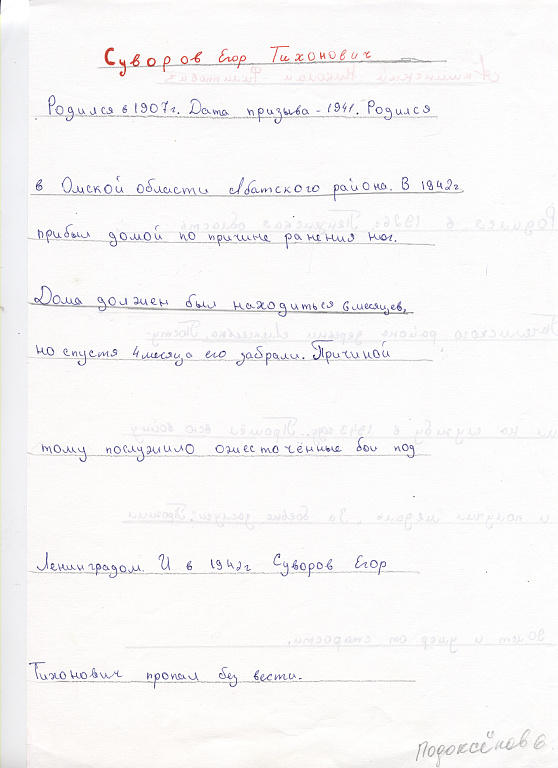 Суворов Егор Тихонович
Родился в 1907г. Дата призыва - 1941. Родился
в Омской области Абатского района. В 1942г.
прибыл домой по причине ранения ног.
Дома должен был находиться 6 месяцев,
но спустя 4 месяца его забрали. Причиной
тому послужило ожесточённые бои под
Ленинградом. И в 1942г Суворов Егор
Тихонович пропал без вести.
Подоксёнов Е.